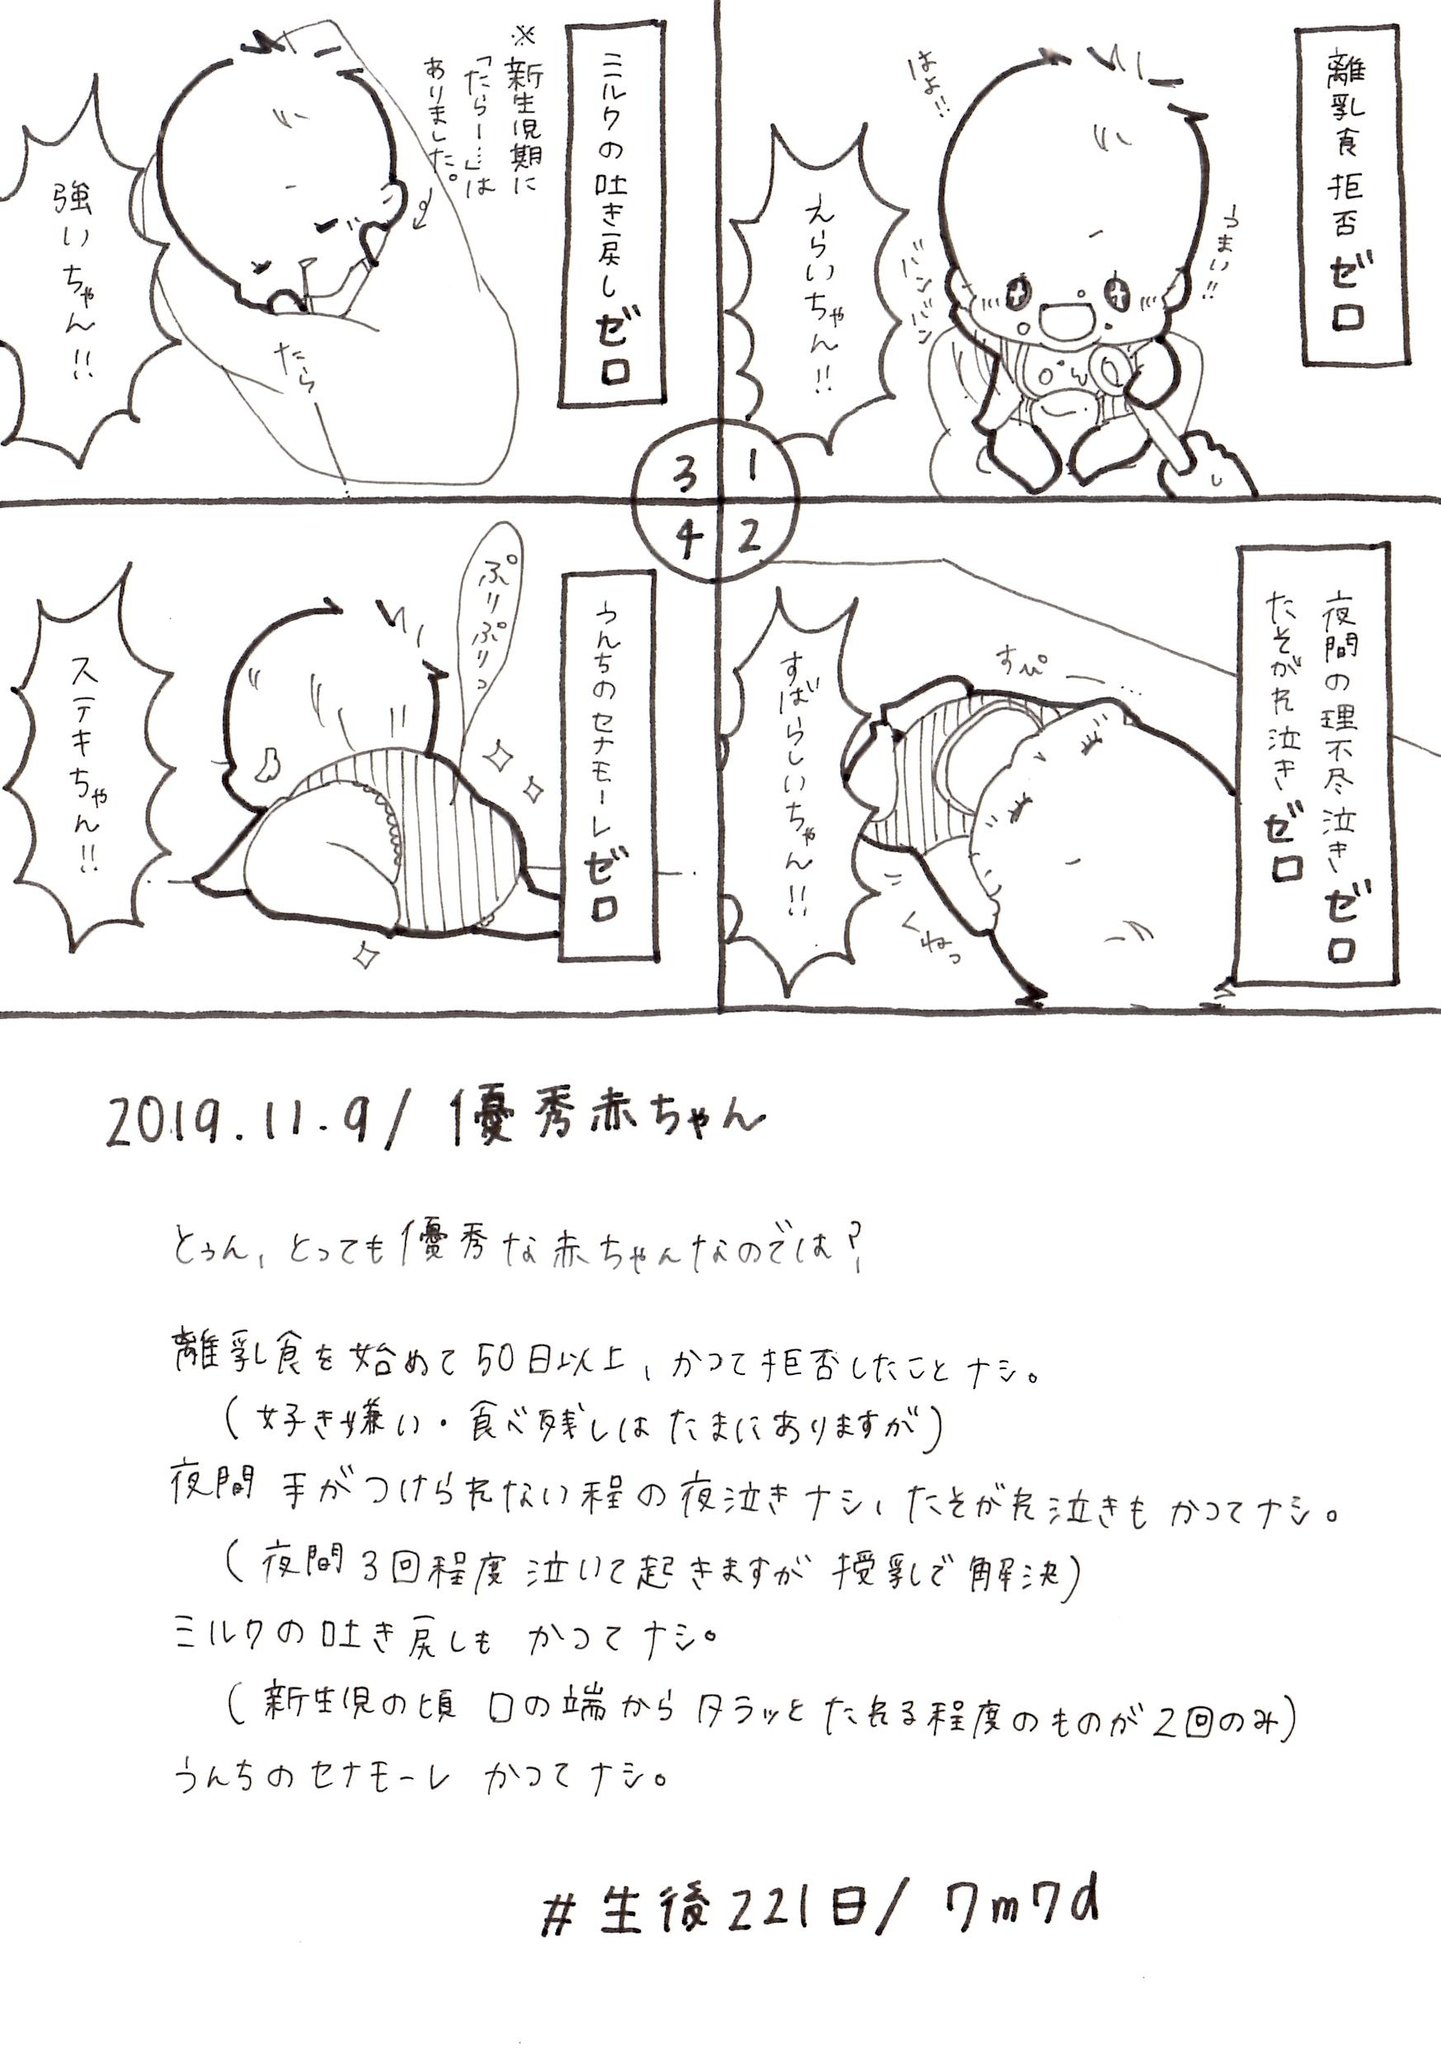 離乳食拒否ゼロ
はよ!!
うまい!!
バンバン
えらいちゃん!!
夜間の理不尽泣きゼロ
たそがれ泣きゼロ
すぴー…
くねっ
すばらしいちゃん!!
ミルクの吐き戻しゼロ
※新生児期に
「たらー…」は
ありました。
たらー…
強いちゃん!!
うんちのセナモーレゼロ
ぷりぷりっ
ステキちゃん!!
3 1
4 2
2019.11.9/優秀赤ちゃん
とぅん、とっても優秀な赤ちゃんなのでは?
離乳食を始めて50日以上、かつて拒否したことナシ。
(好き嫌い・食べ残しはたまにありますが)
夜間 手がつけられない程の夜泣きナシ、たそがれ泣きもかつてナシ。
(夜間3回程度泣いて起きますが授乳で解決)
ミルクの吐き戻しも かつてナシ。
(新生児の頃 口の端からタラッとたれる程度のものが2回のみ)
うんちのセナモーレ かつてナシ。
#生後221日/7m7d